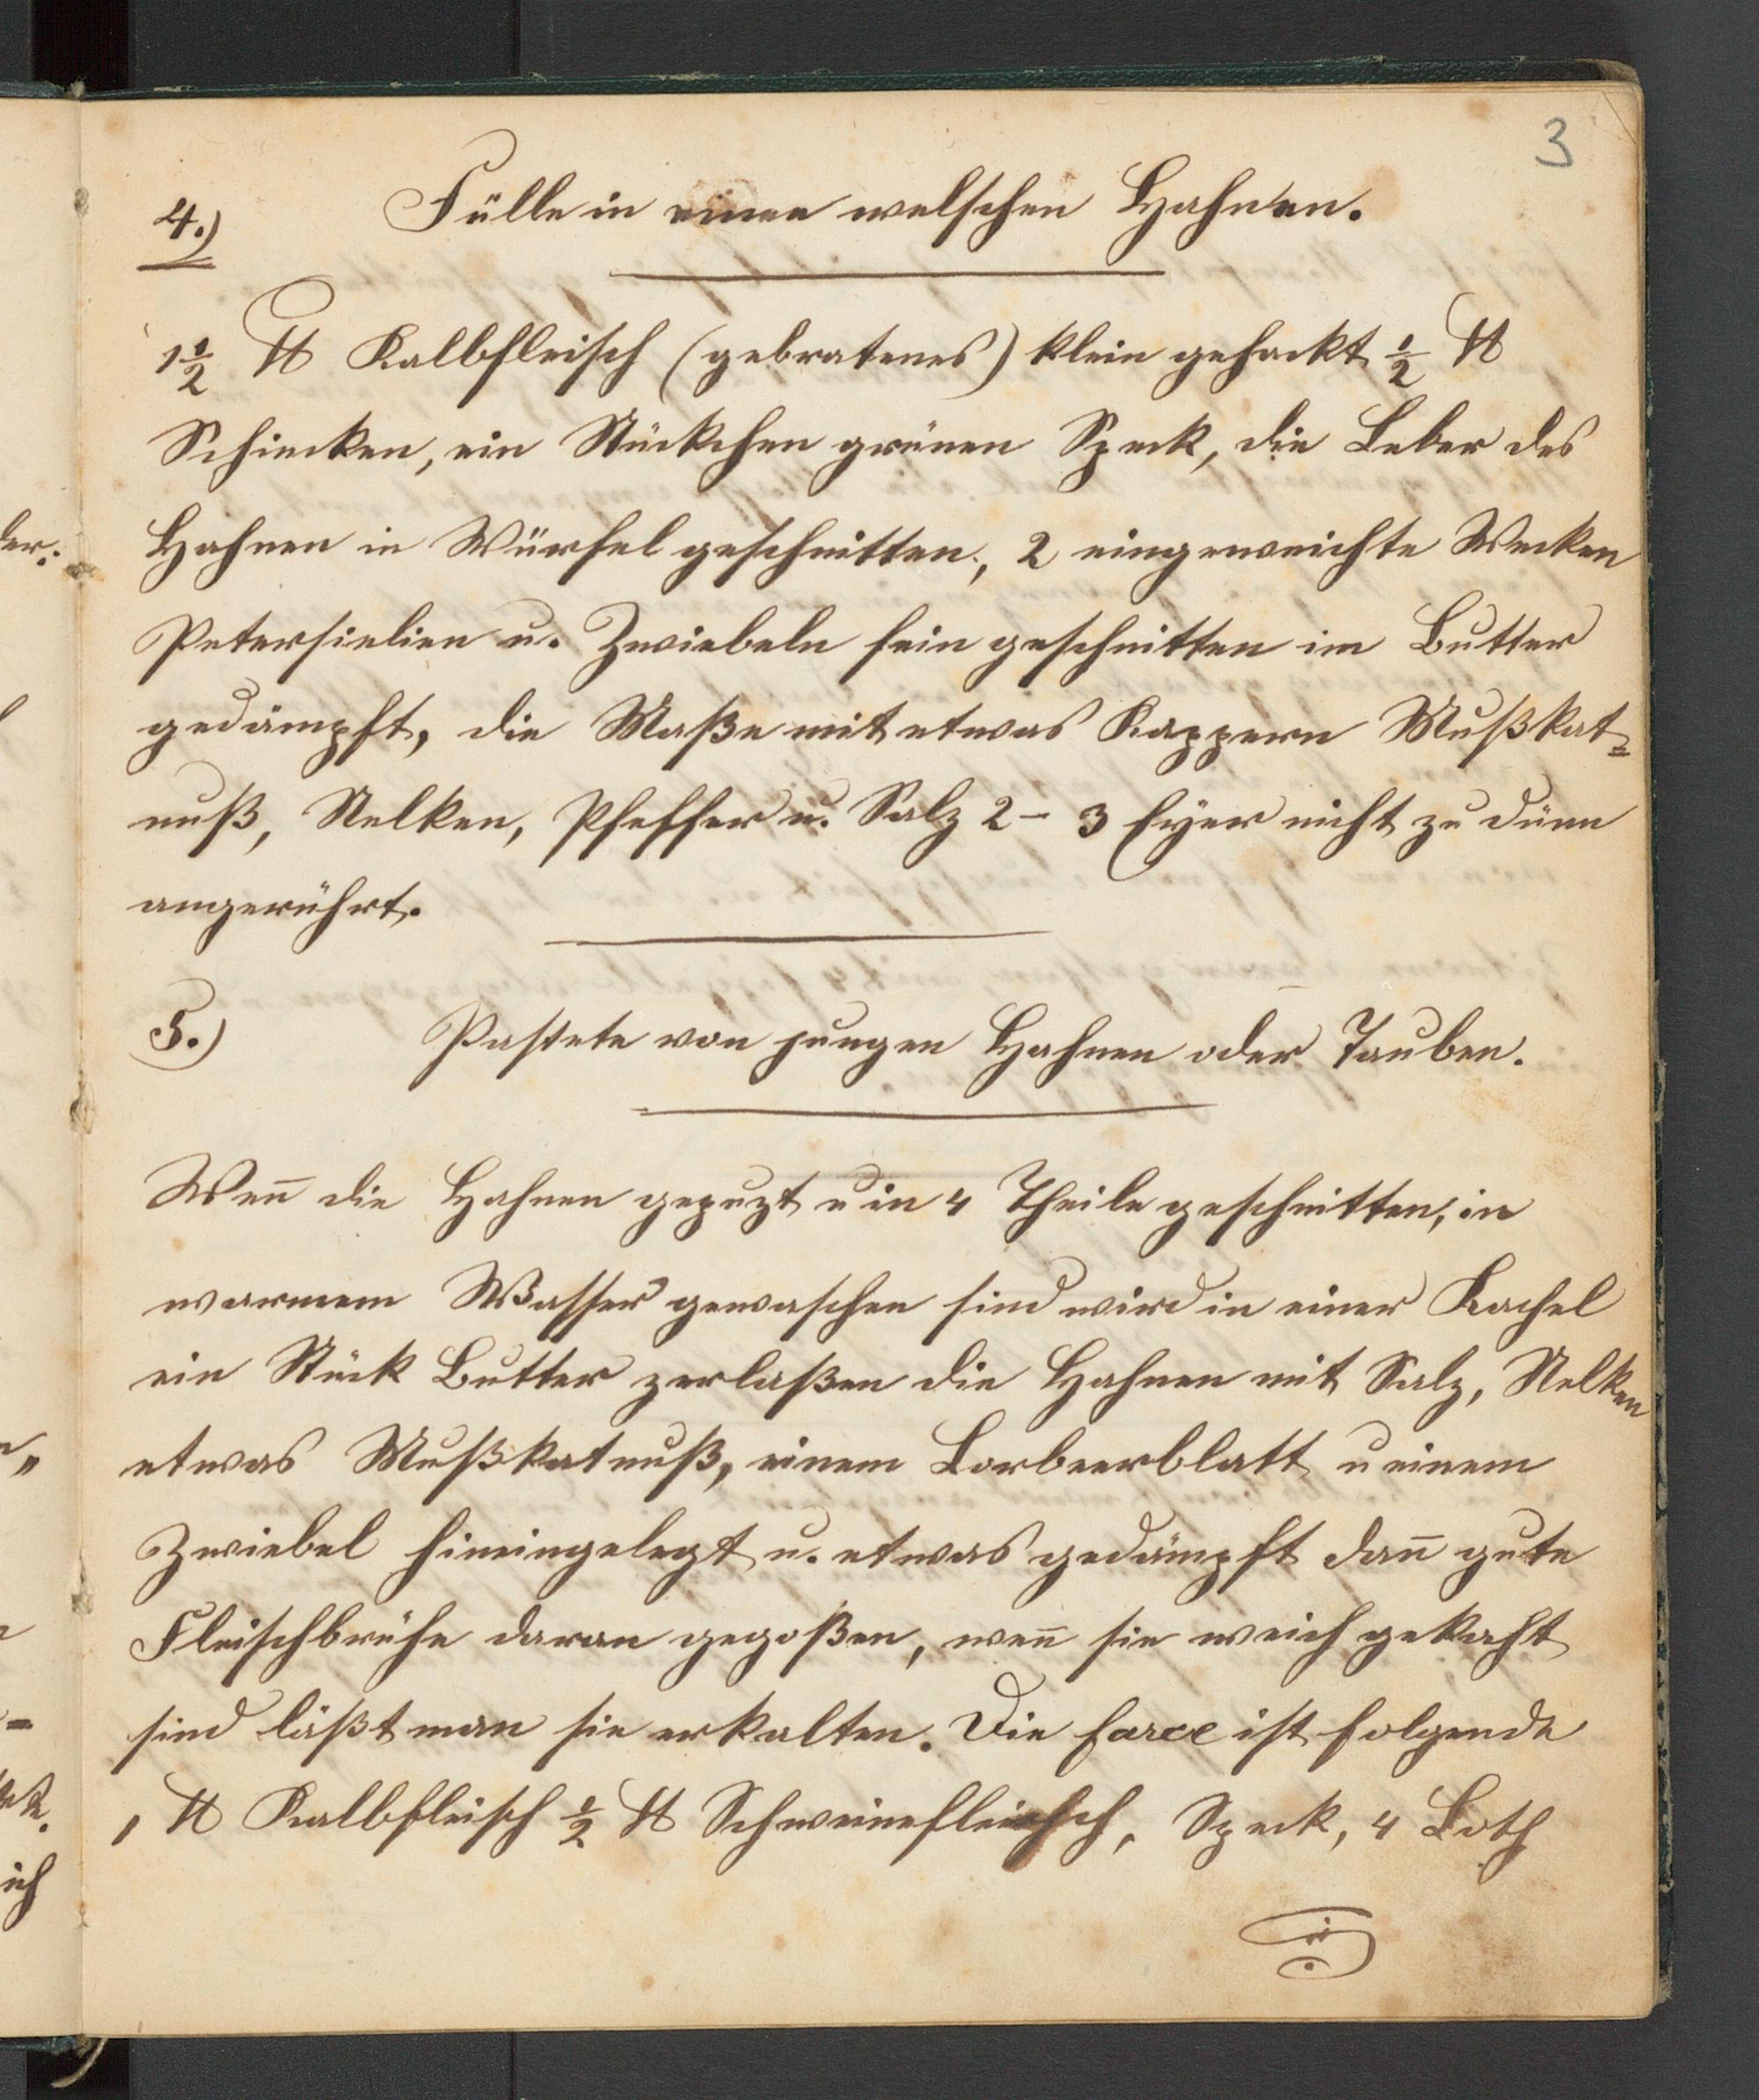 3
4.) Fülle in einen welschen Hahnen.
1½ ℔ Kalbfleisch (gebratenes) klein gehackt ½ ℔
Schincken, ein Stückchen grünen Speck, die Leber des
Hahnen in Würfel geschnitten, 2 eingeweichte Wecken
Petersielien u. Zwiebeln fein geschnitten im Butter
gedämpft, die Maße mit etwas Kappern Mußkat=
nuß, Nelken, Pfeffer u. Salz 2 - 3 Eÿer nicht zu dünn
angerührt.
5.) Pastete von jungen Hahnen oder Tauben.
Weñ die Hahnen gepuzt u in 4 Theile geschnitten, in
warmem Wasser gewaschen sind wird in einer Kachel
ein Stück Butter zerlaßen die Hahnen mit Salz, Nelken
etwas Mußkatnuß, einem Lorbeerblatt u einem
Zwiebel hineingelegt u. etwas gedämpft dañ gute
Fleischbrühe daran gegoßen, weñ sie weich gekocht
sind läßt man sie erkalten. Die farce ist folgende
1 ℔ Kalbfleisch ½ ℔ Schweinefleisch, Speck, 4 Loth